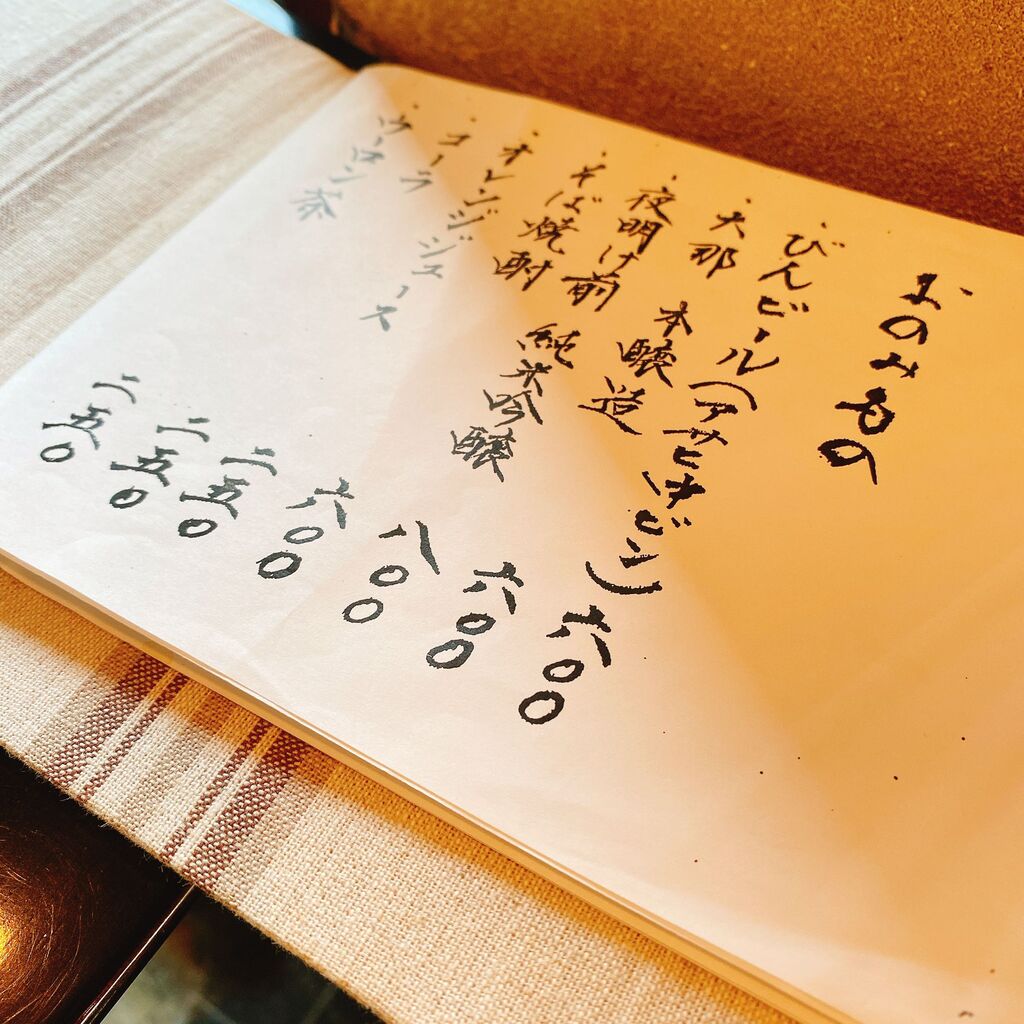 おのみもの
・びんビール(アサヒ中ビン) 六〇〇
・大那 本醸造 六〇〇
・夜明け前 純米吟醸 八〇〇
・そば焼酎 六〇〇
・オレンジジュース 二五〇
・コーラ 二五〇
・ウーロン茶 二五〇